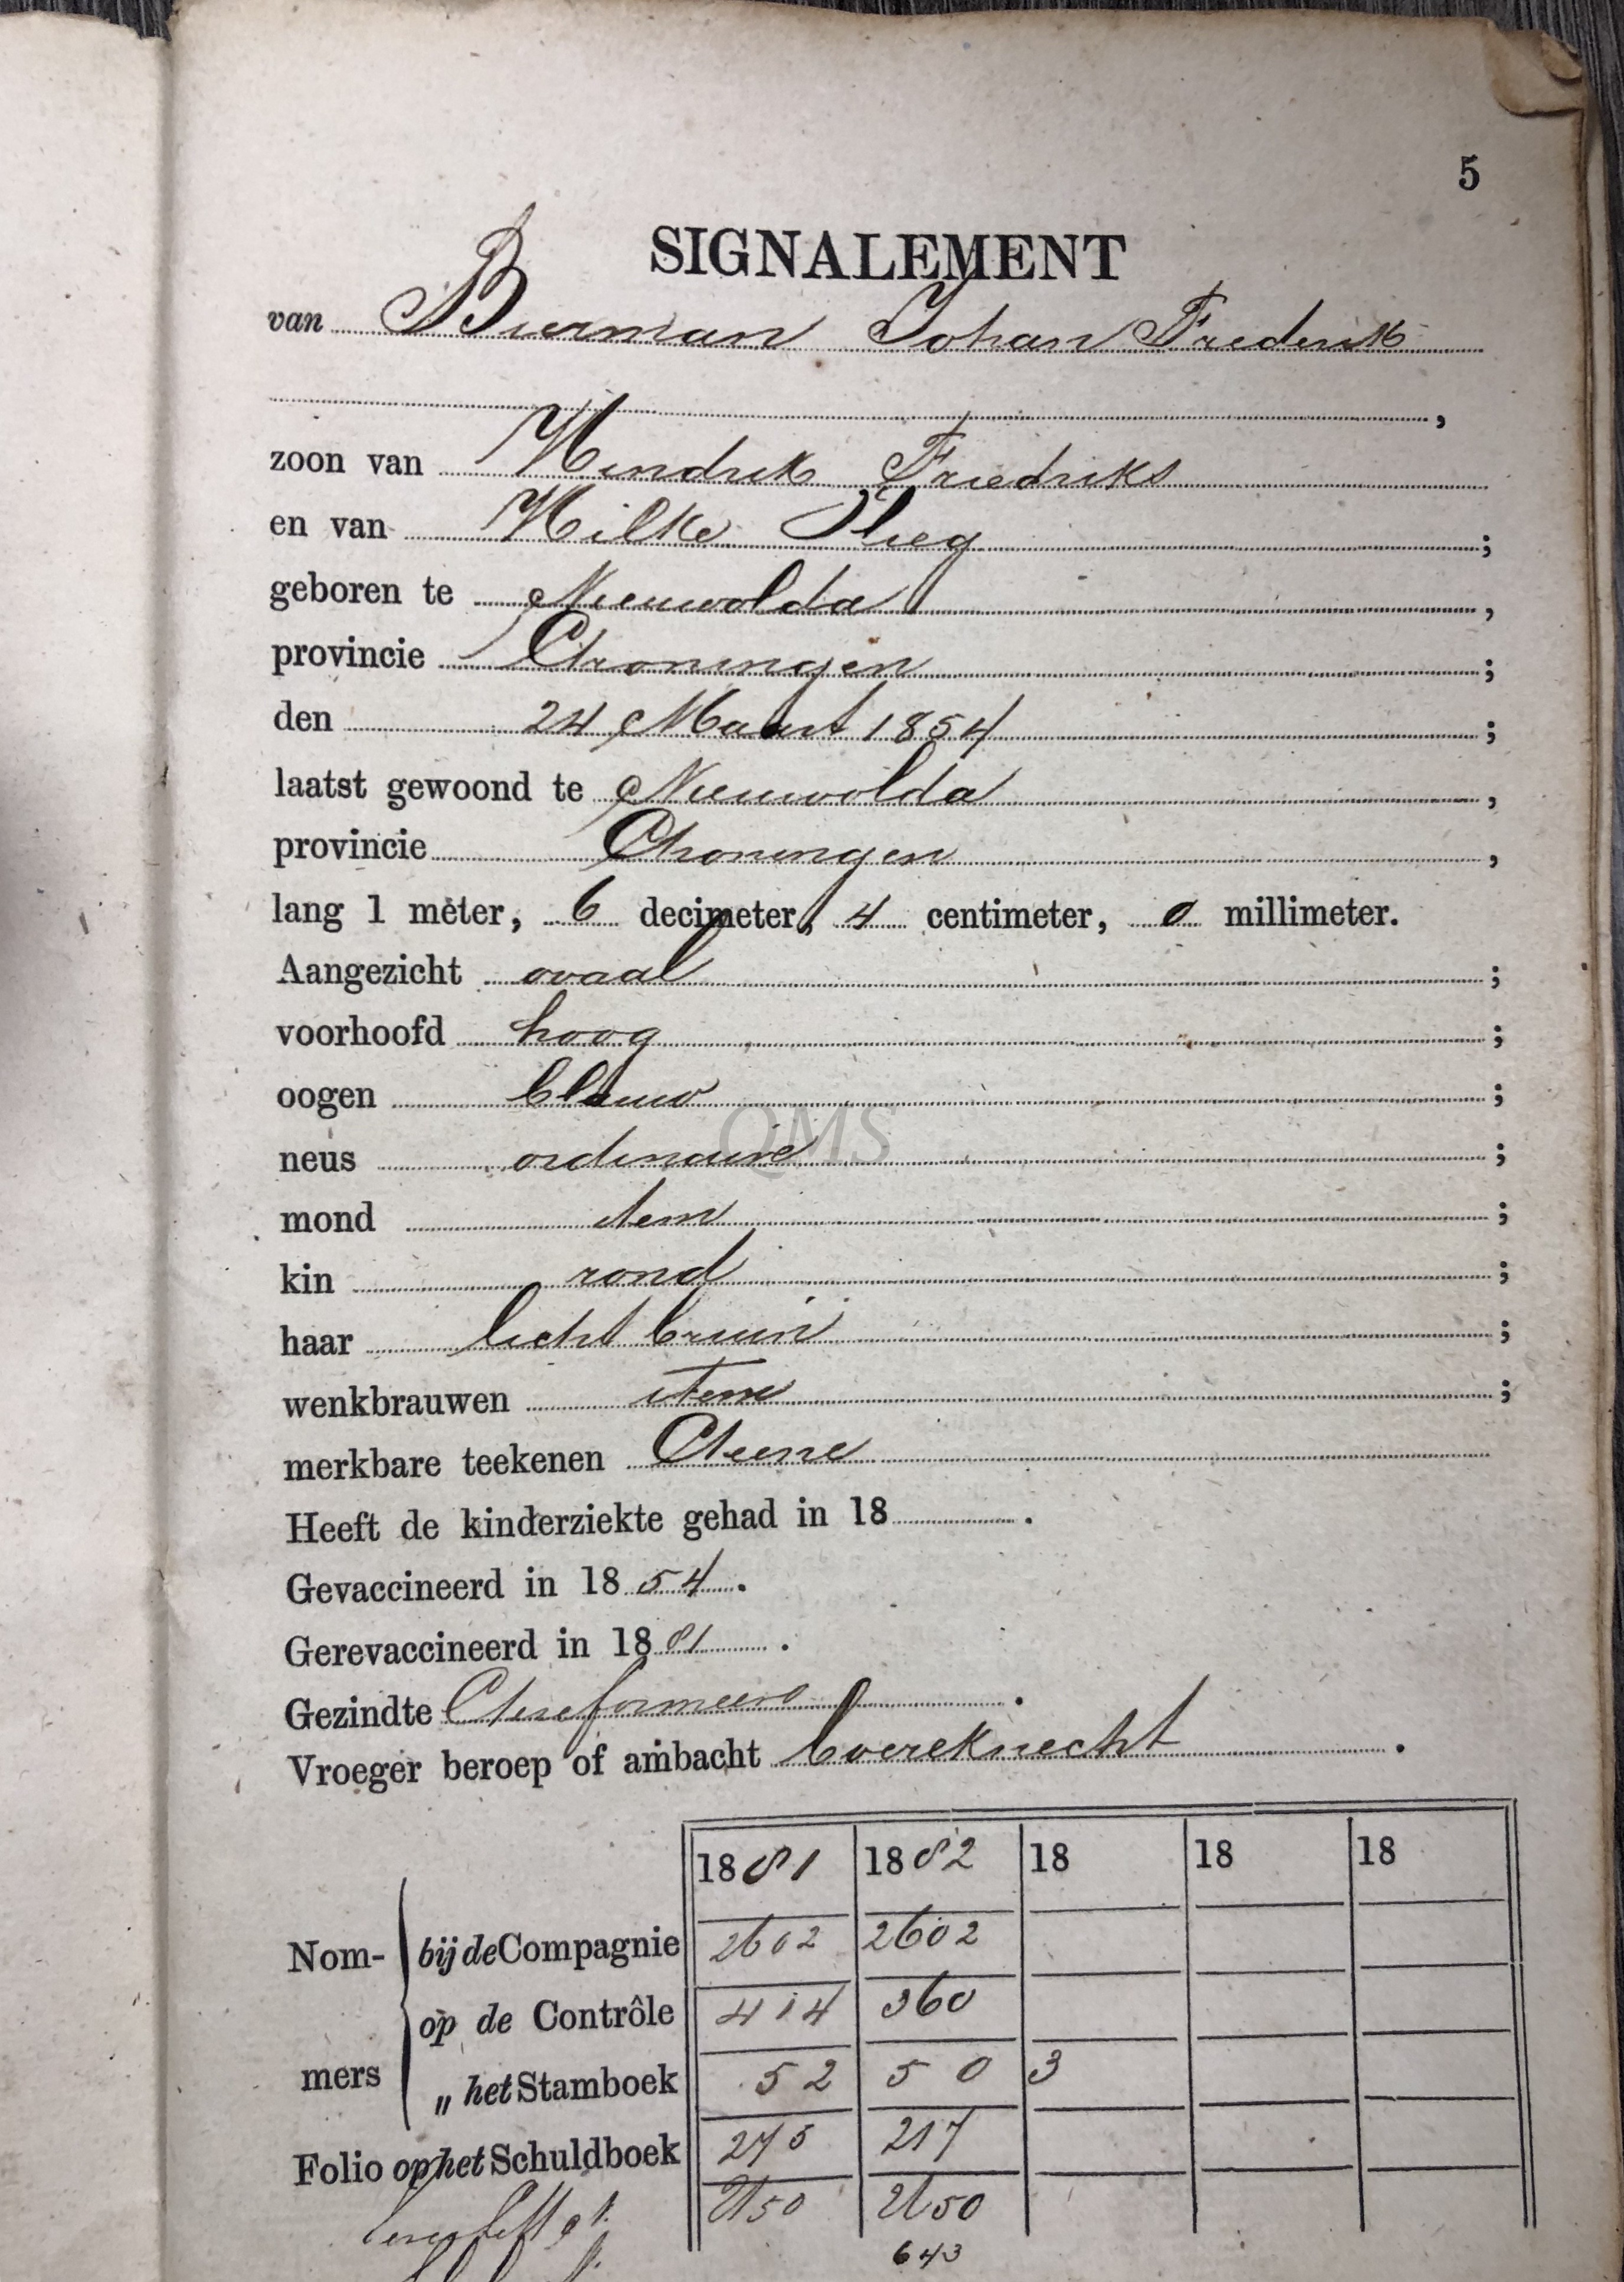 5
SIGNALEMENT
van Bierman Johan Frederik
,
zoon van Hindrik Friedriks
en van Hilke Ploeg ;
geboren te Nieuwolda ,
provincie Groningen ;
den 24 Maart 1854 ;
laatst gewoond te Nieuwolda ,
provincie Groningen ,
lang 1 meter, 6 decimeter, 4 centimeter, 0 millimeter.
Aangezicht ovaal ;
voorhoofd hoog ;
oogen blauw ;
neus ordinaire ;
mond item ;
kin rond ;
haar licht bruin ;
wenkbrauwen item ;
merkbare teekenen Geene
Heeft de kinderziekte gehad in 18 .
Gevaccineerd in 1854 .
Gerevaccineerd in 1881 .
Gezindte Gereformeerd .
Vroeger beroep of ambacht boereknecht .
1881 1882 18 18 18
Nom- bij de Compagnie 2602 2602
op de Contrôle 414 360
mers „ het Stamboek 52 50 3
Folio op het Schuldboek 275 217
2150 2150
643
QMS